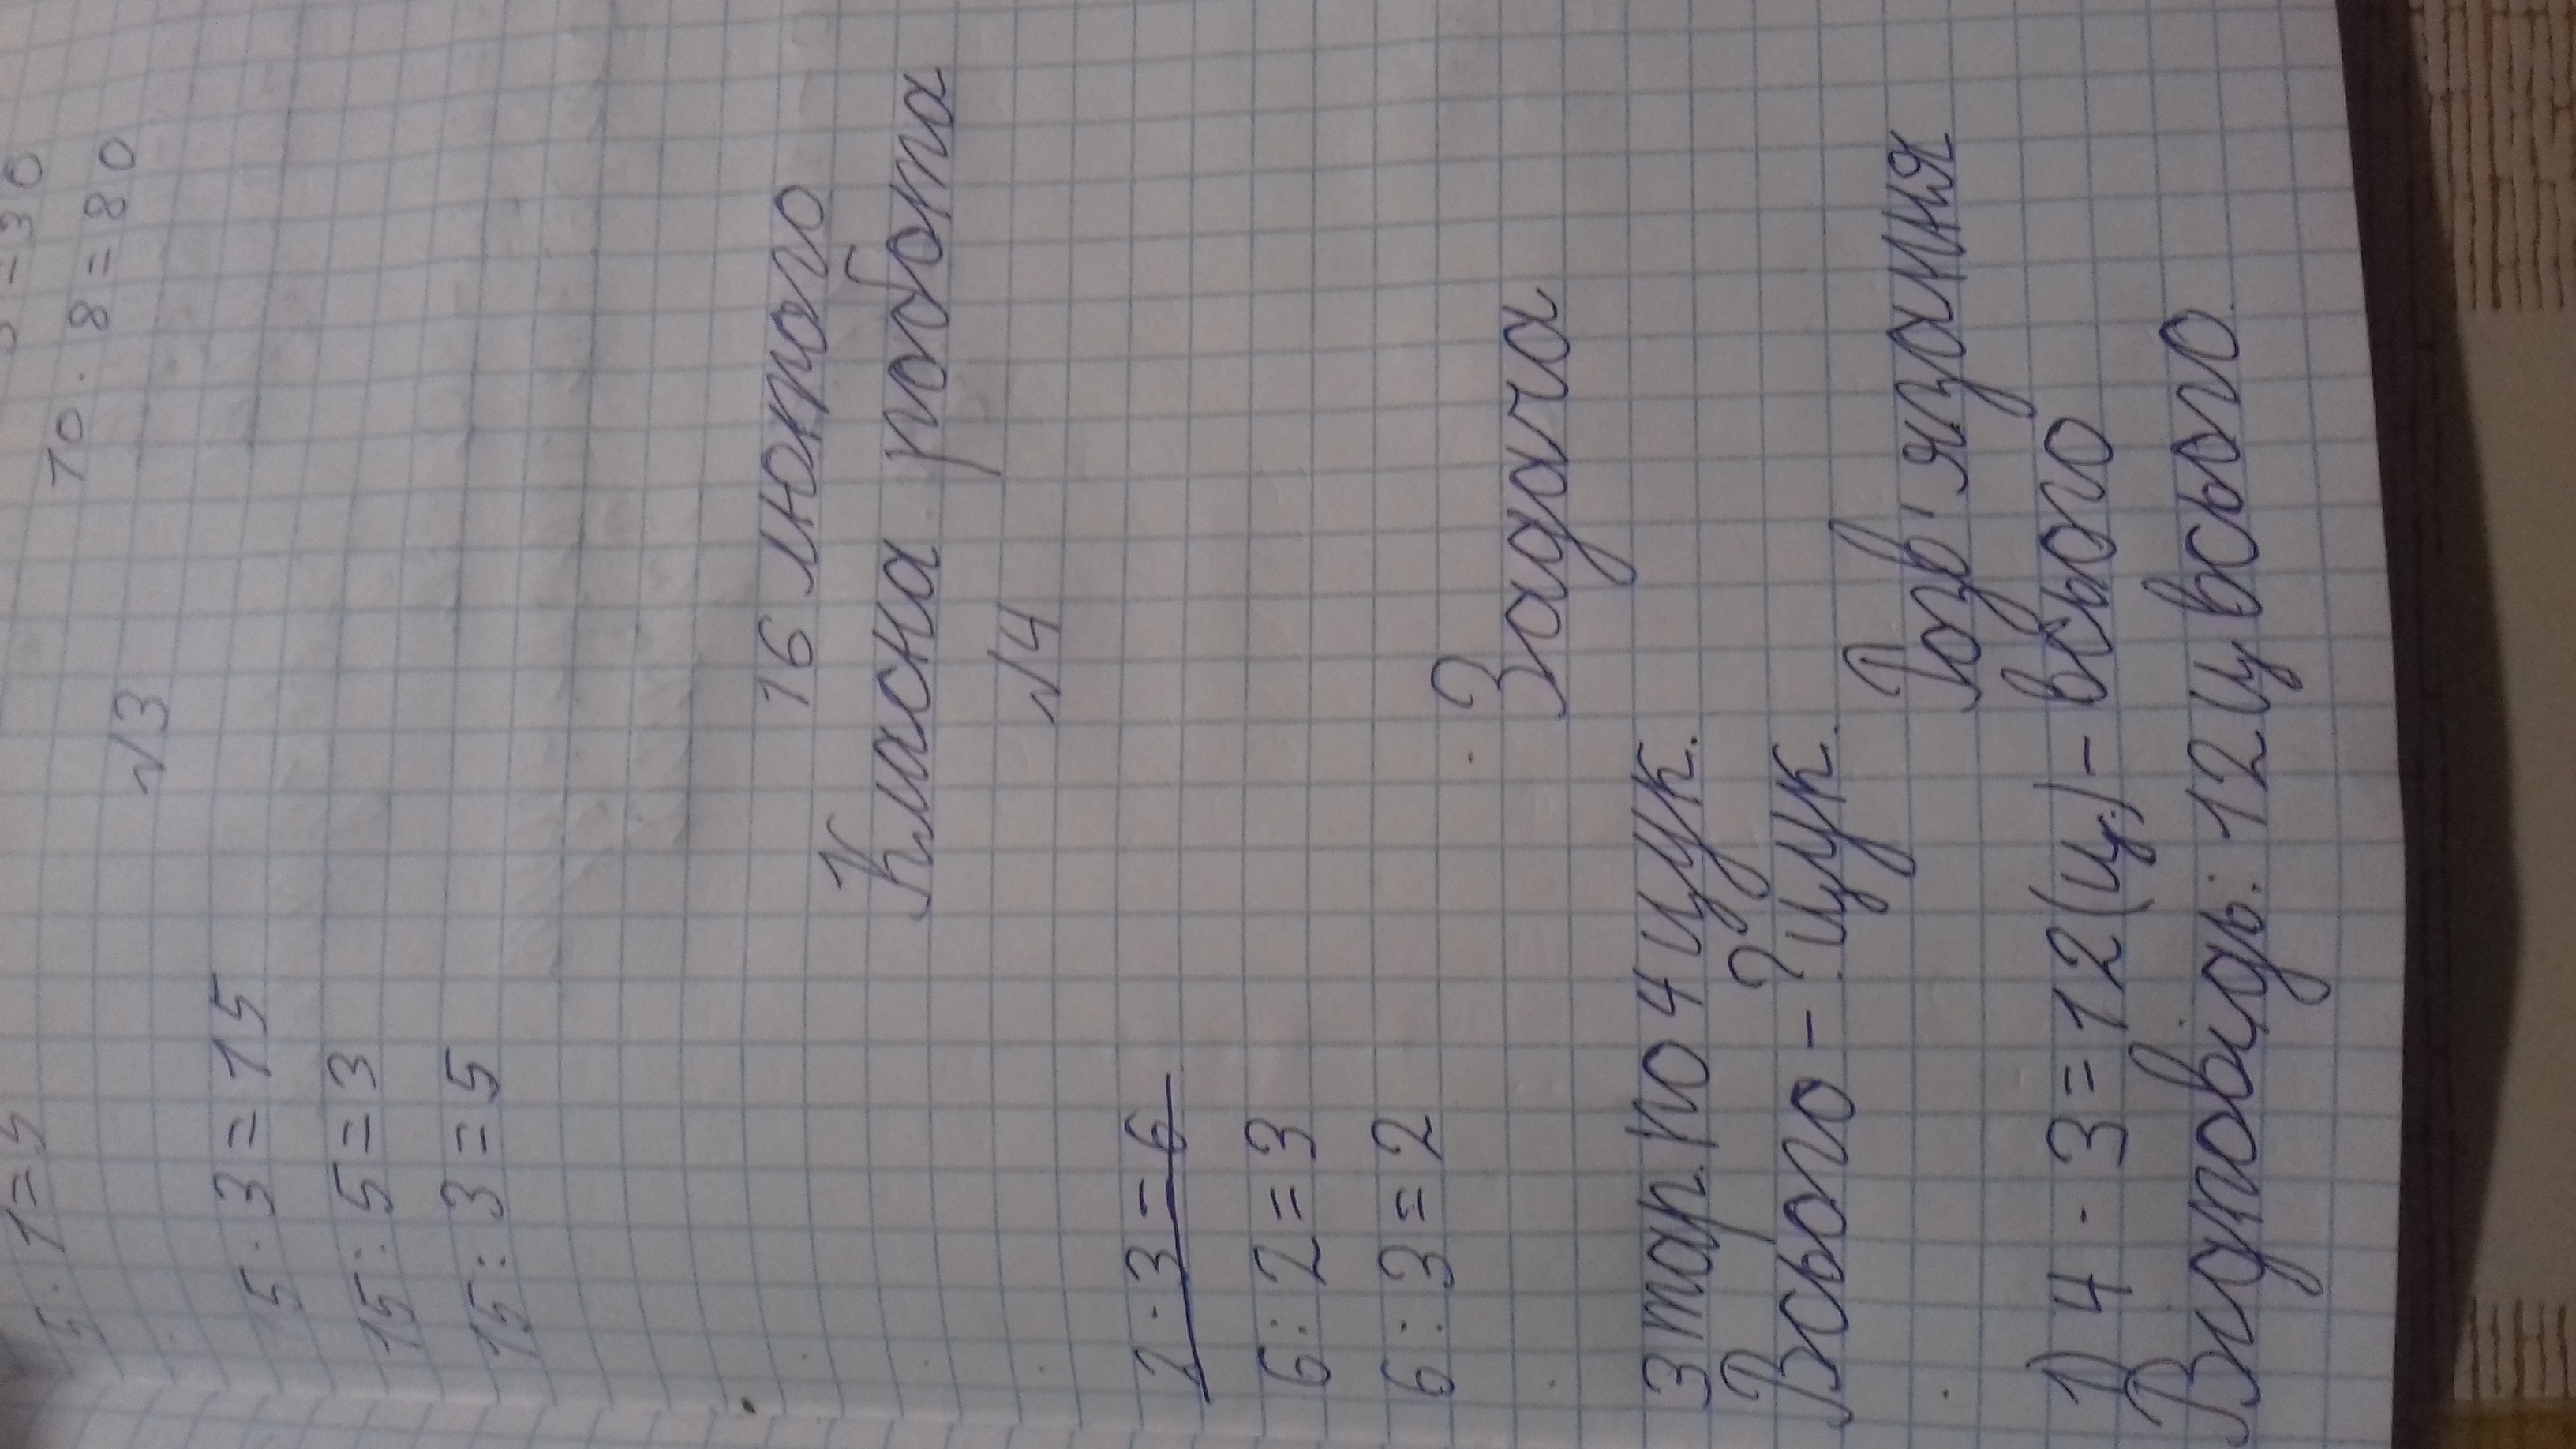 5 · 1 = 5
= 30
10 · 8 = 80
№3
5 · 3 = 15
15 : 5 = 3
15 : 3 = 5
16 лютого
Класна робота
№4
2 · 3 = 6
6 : 2 = 3
6 : 3 = 2
Задача
3 тар. по 4 цук.
Всього - ? цук.
Розв'язання
1) 4 · 3 = 12 (ц.) - всього
Відповідь: 12 ц всього.